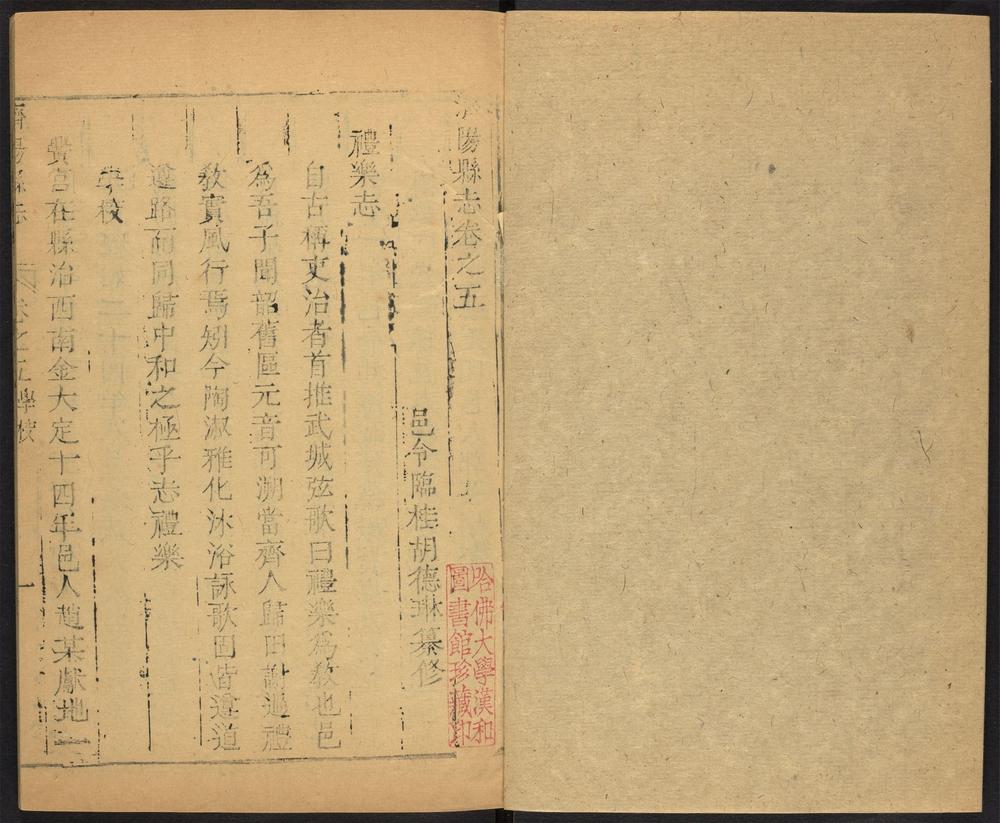 濟陽縣志卷之五
邑令臨桂胡德琳纂修
禮樂志
自古稱吏治者首推武城弦歌曰禮樂爲敎也邑
爲吾子聞韶舊區元音可溯當齊人歸田謝過禮
敎實風行焉矧今陶淑雅化沐浴詠歌固皆遵道
遵路而同歸中和之極乎志禮樂
學校
黌宮在縣治西南金大定十四年邑人趙某獻地一
濟陽縣志
卷之五學校
一
哈佛大學漢和
圖書館珍藏印